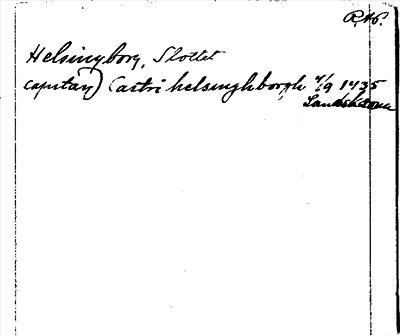 R.A.P.
Helsingborg, Slottet
capitan) Castri helsinghborgh 4/9 1435
Landskrona